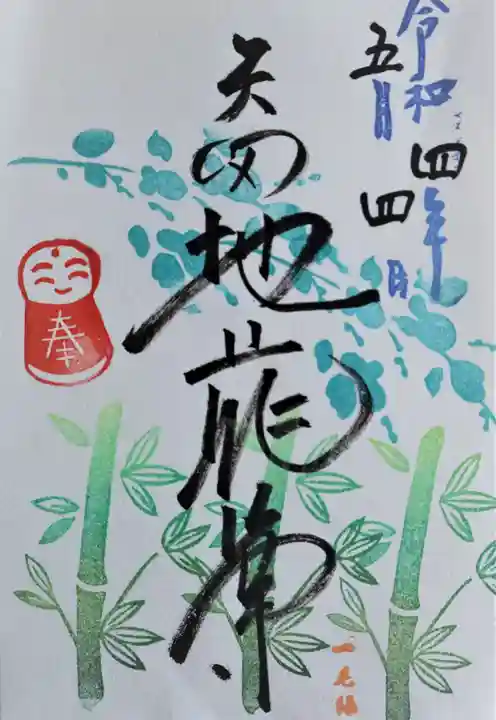 令和四年
五月四日
矢田地蔵尊
奉